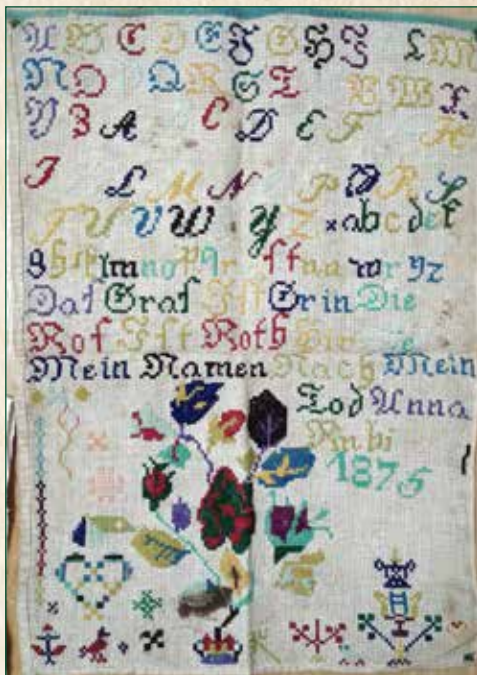 A B C D E F G H I L M
N O Q R S T V W X
Y Z A C D E F H
I L M N P Q R S
T U V W Y Z abcdef
lmnopqr wxyz
Das Gras Ist Grin Die
Ros Ist Roth
Mein Namen Nach Mein
Tod Anna
Rubi
1875